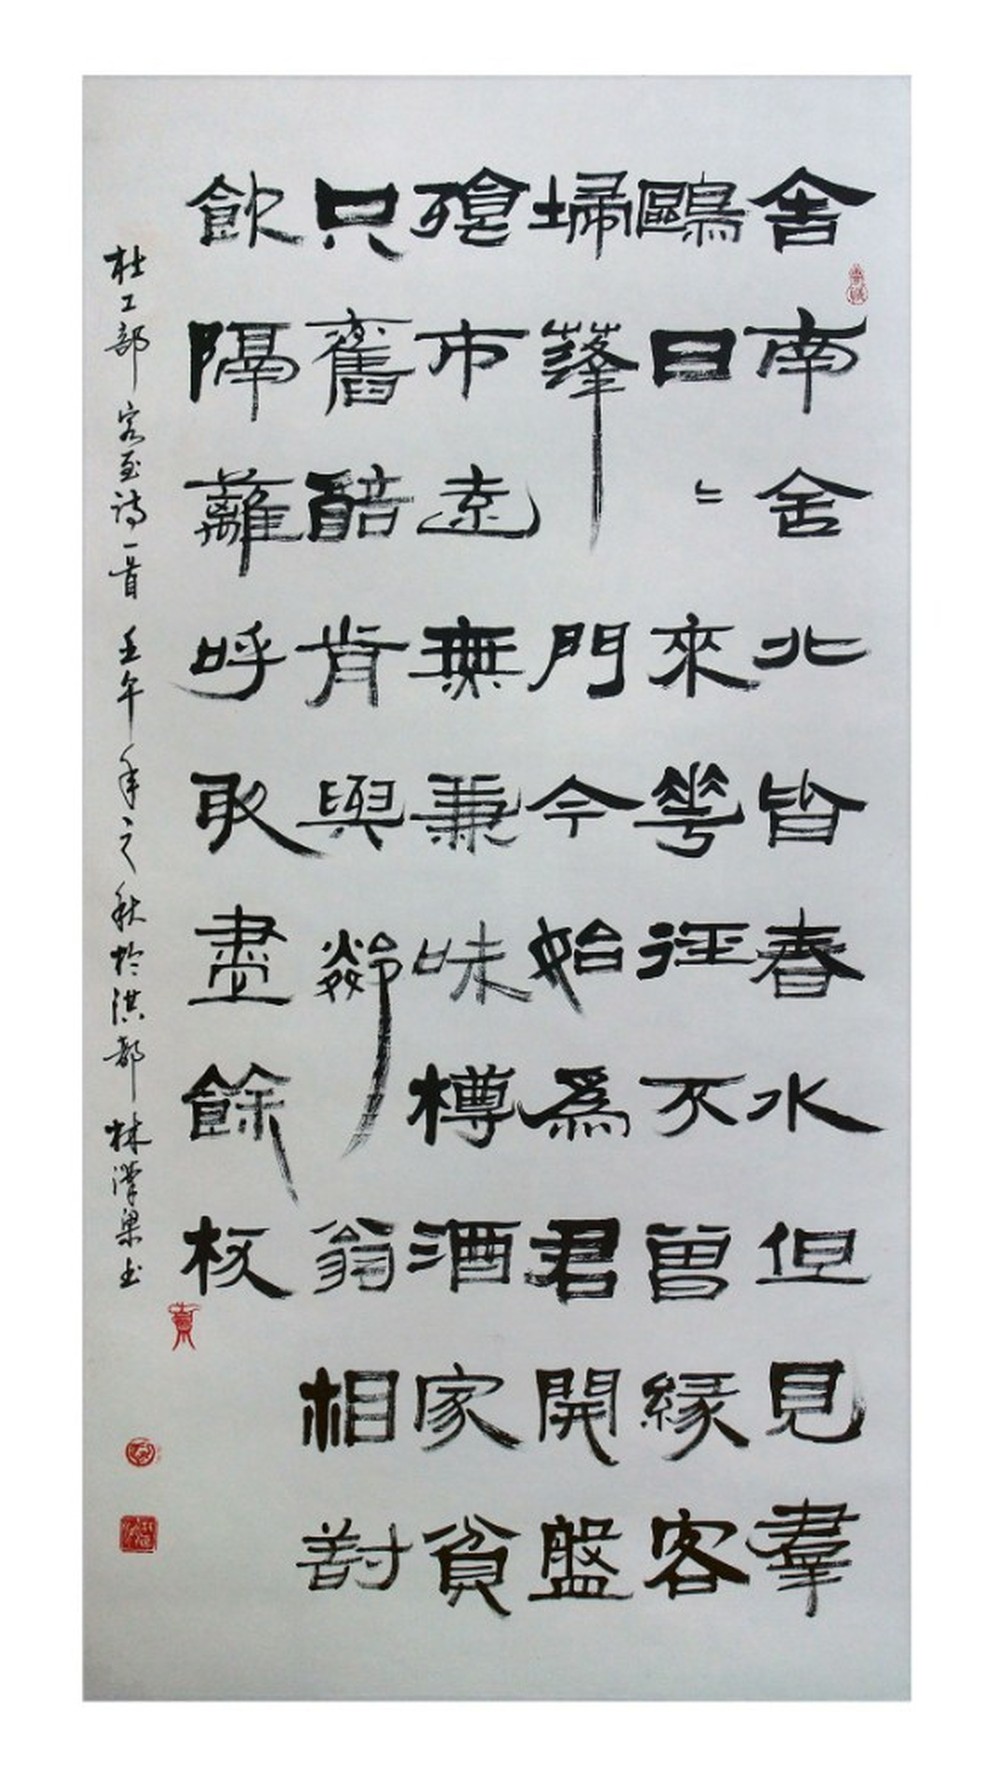 舍南舍北皆春水但見羣
鷗日〻來華徑不曾緣客
埽蓬門今始爲君開盤
飧市遠無兼味樽酒家貧
只舊醅肯與鄰翁相對
飲隔蘺呼取盡餘杯
杜工部客至詩一首 壬午年之秋於洪都 林漢梁書